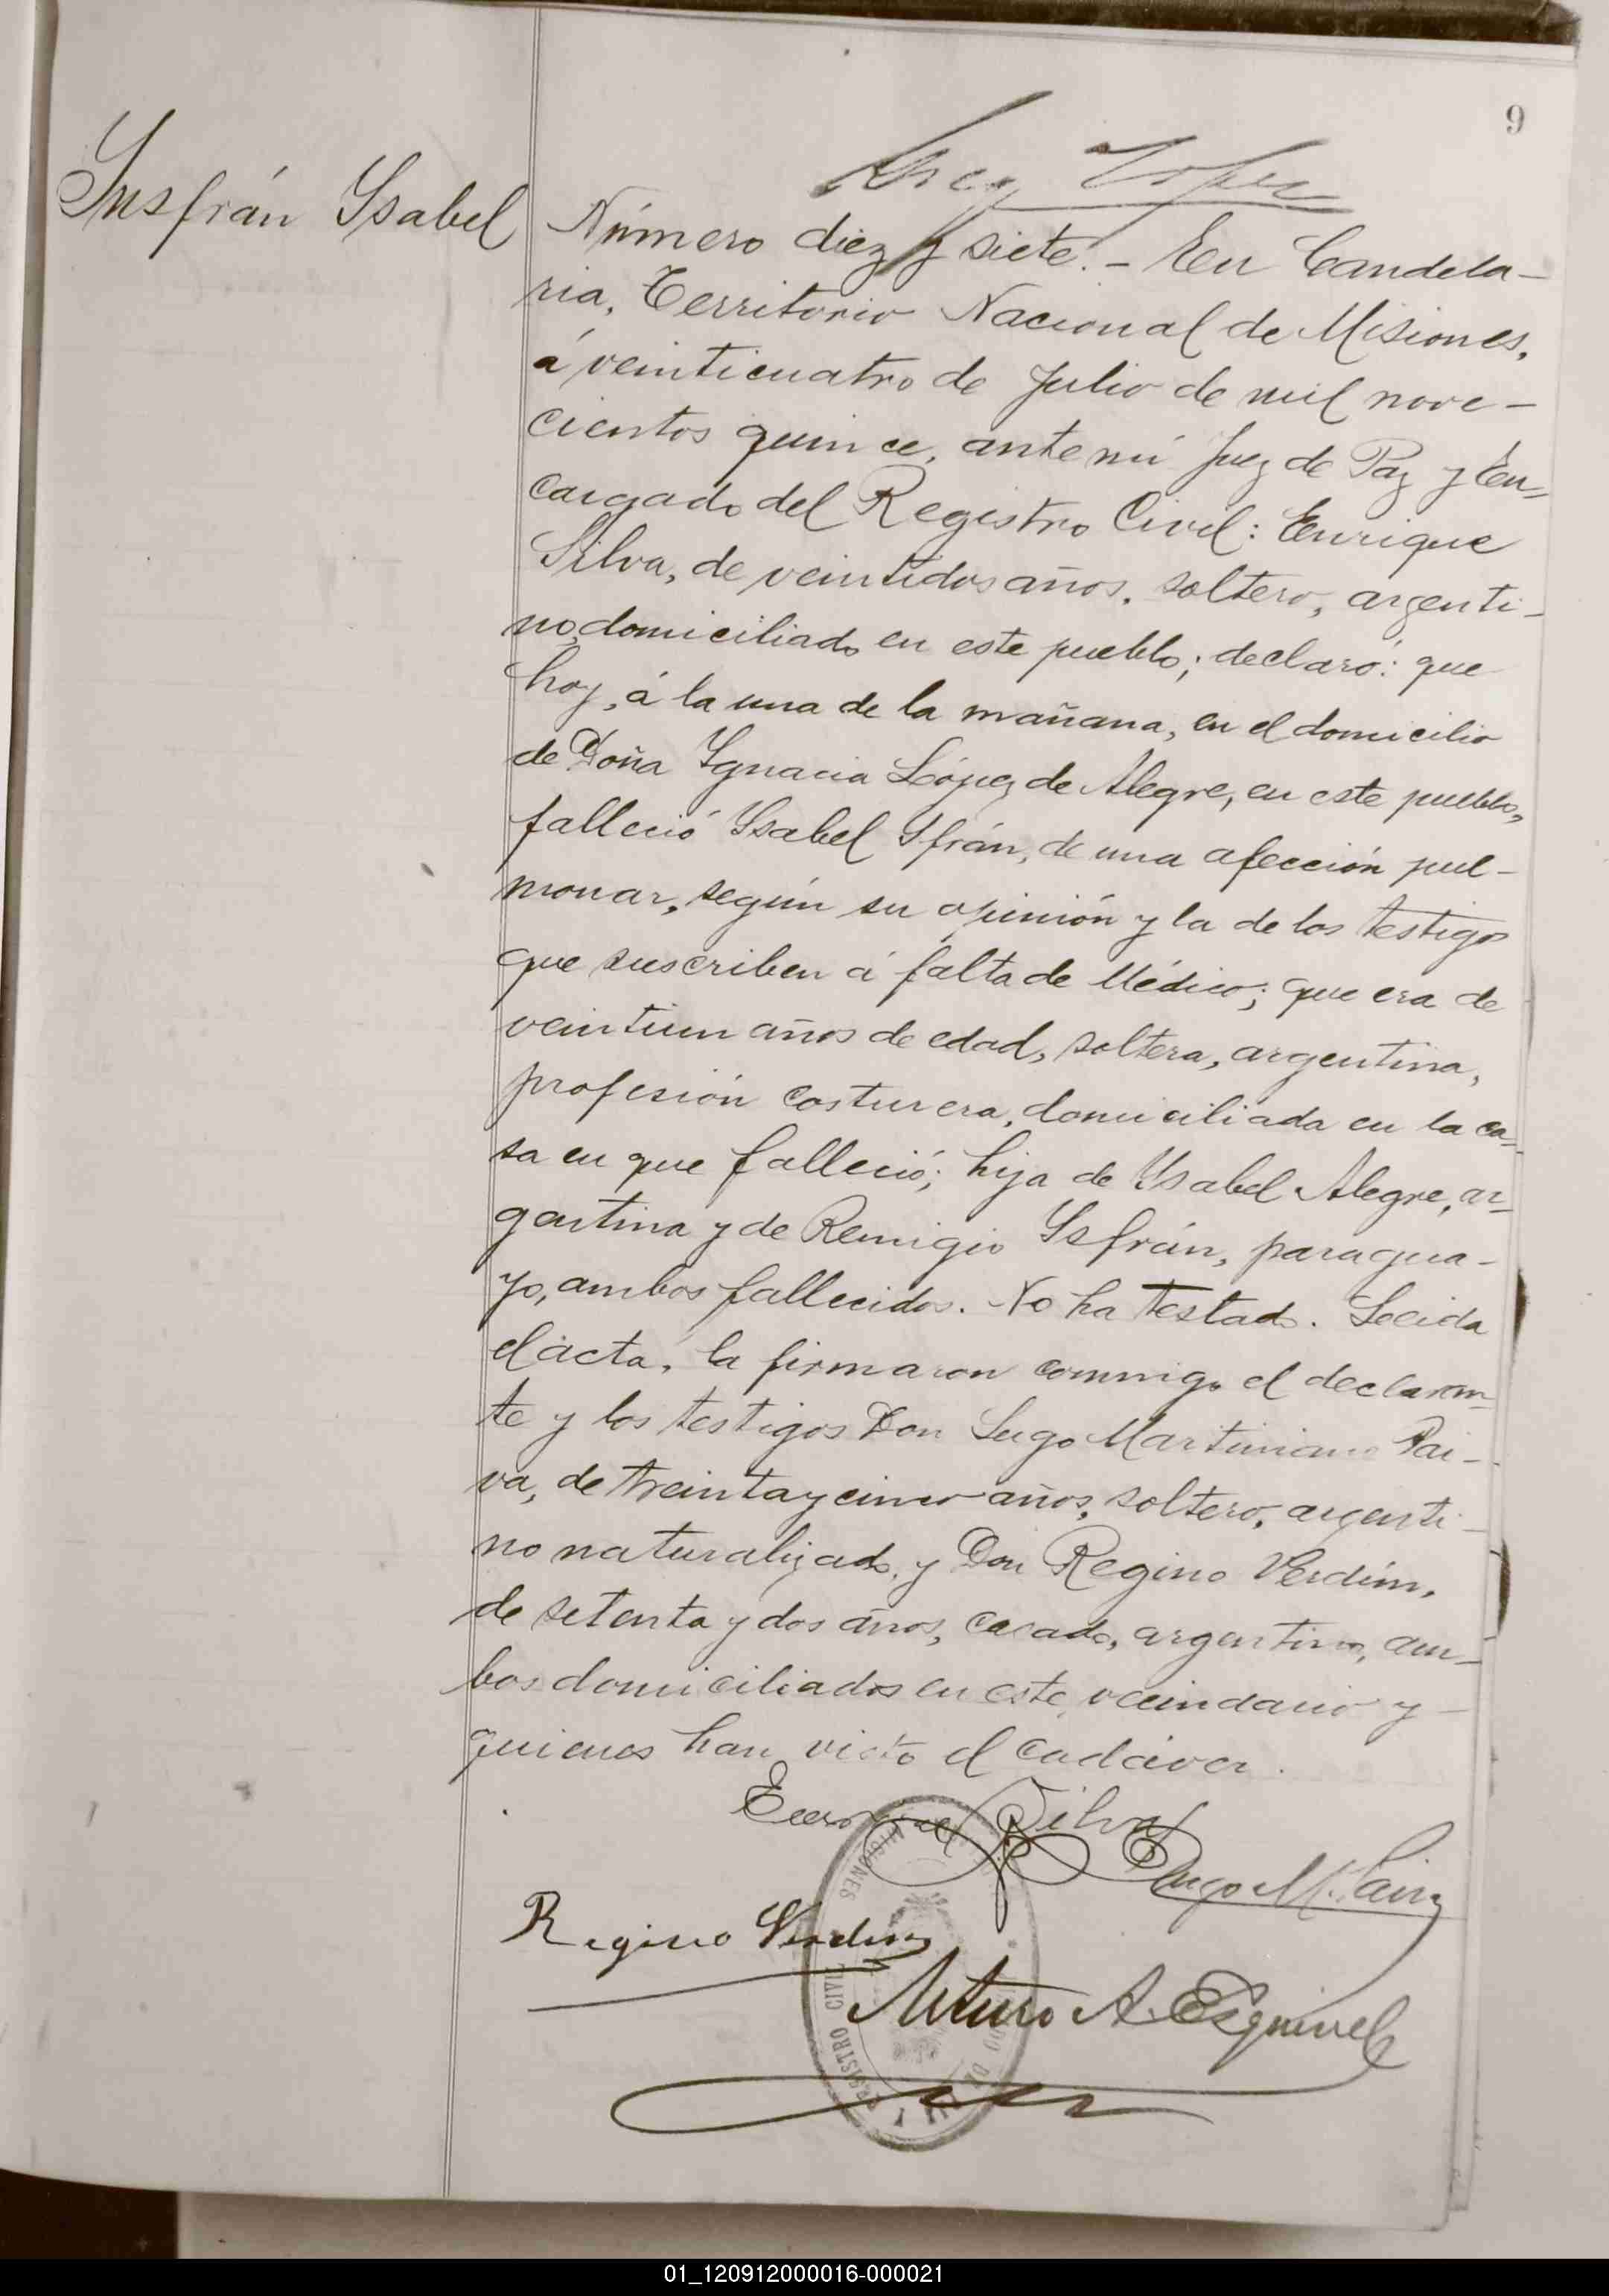 9
Insfrán Ysabel
Número diez y siete.- En Candela-
ria, Territorio Nacional de Misiones,
á veinticuatro de Julio de mil nove-
cientos quince, ante mí Juez de Paz y En-
cargado del Registro Civil: Enrique
Silva, de veintidos años, soltero, argenti-
no, domiciliado en este pueblo; declaró: que
hoy, á la una de la mañana, en el domicilio
de Doña Ygnacia López de Alegre, en este pueblo,
falleció Ysabel Yfrán, de una afección pul-
monar, según su opinión y la de los testigos
que suscriben á falta de Médico; que era de
veintiun años de edad, soltera, argentina,
profesión costurera, domiciliada en la ca-
sa en que falleció; hija de Ysabel Alegre, ar-
gentina y de Remigio Ysfrán, paragua-
yo, ambos fallecidos. No ha testado. Leida
el acta, la firmaron conmigo el declaran-
te y los testigos Don Lugo Martiniano Pai-
va, de treinta y cinco años, soltero, argenti-
no naturalizado, y Don Regino Verdún,
de setenta y dos años, casado, argentino, am-
bos domiciliados en este vecindario y
quienes han visto el cadáver.
Enrique Silva
Lugo M. Paiva
Regino Verdun
Arturo A. Esquivel
REGISTRO CIVIL
MISIONES
01_120912000016-000021